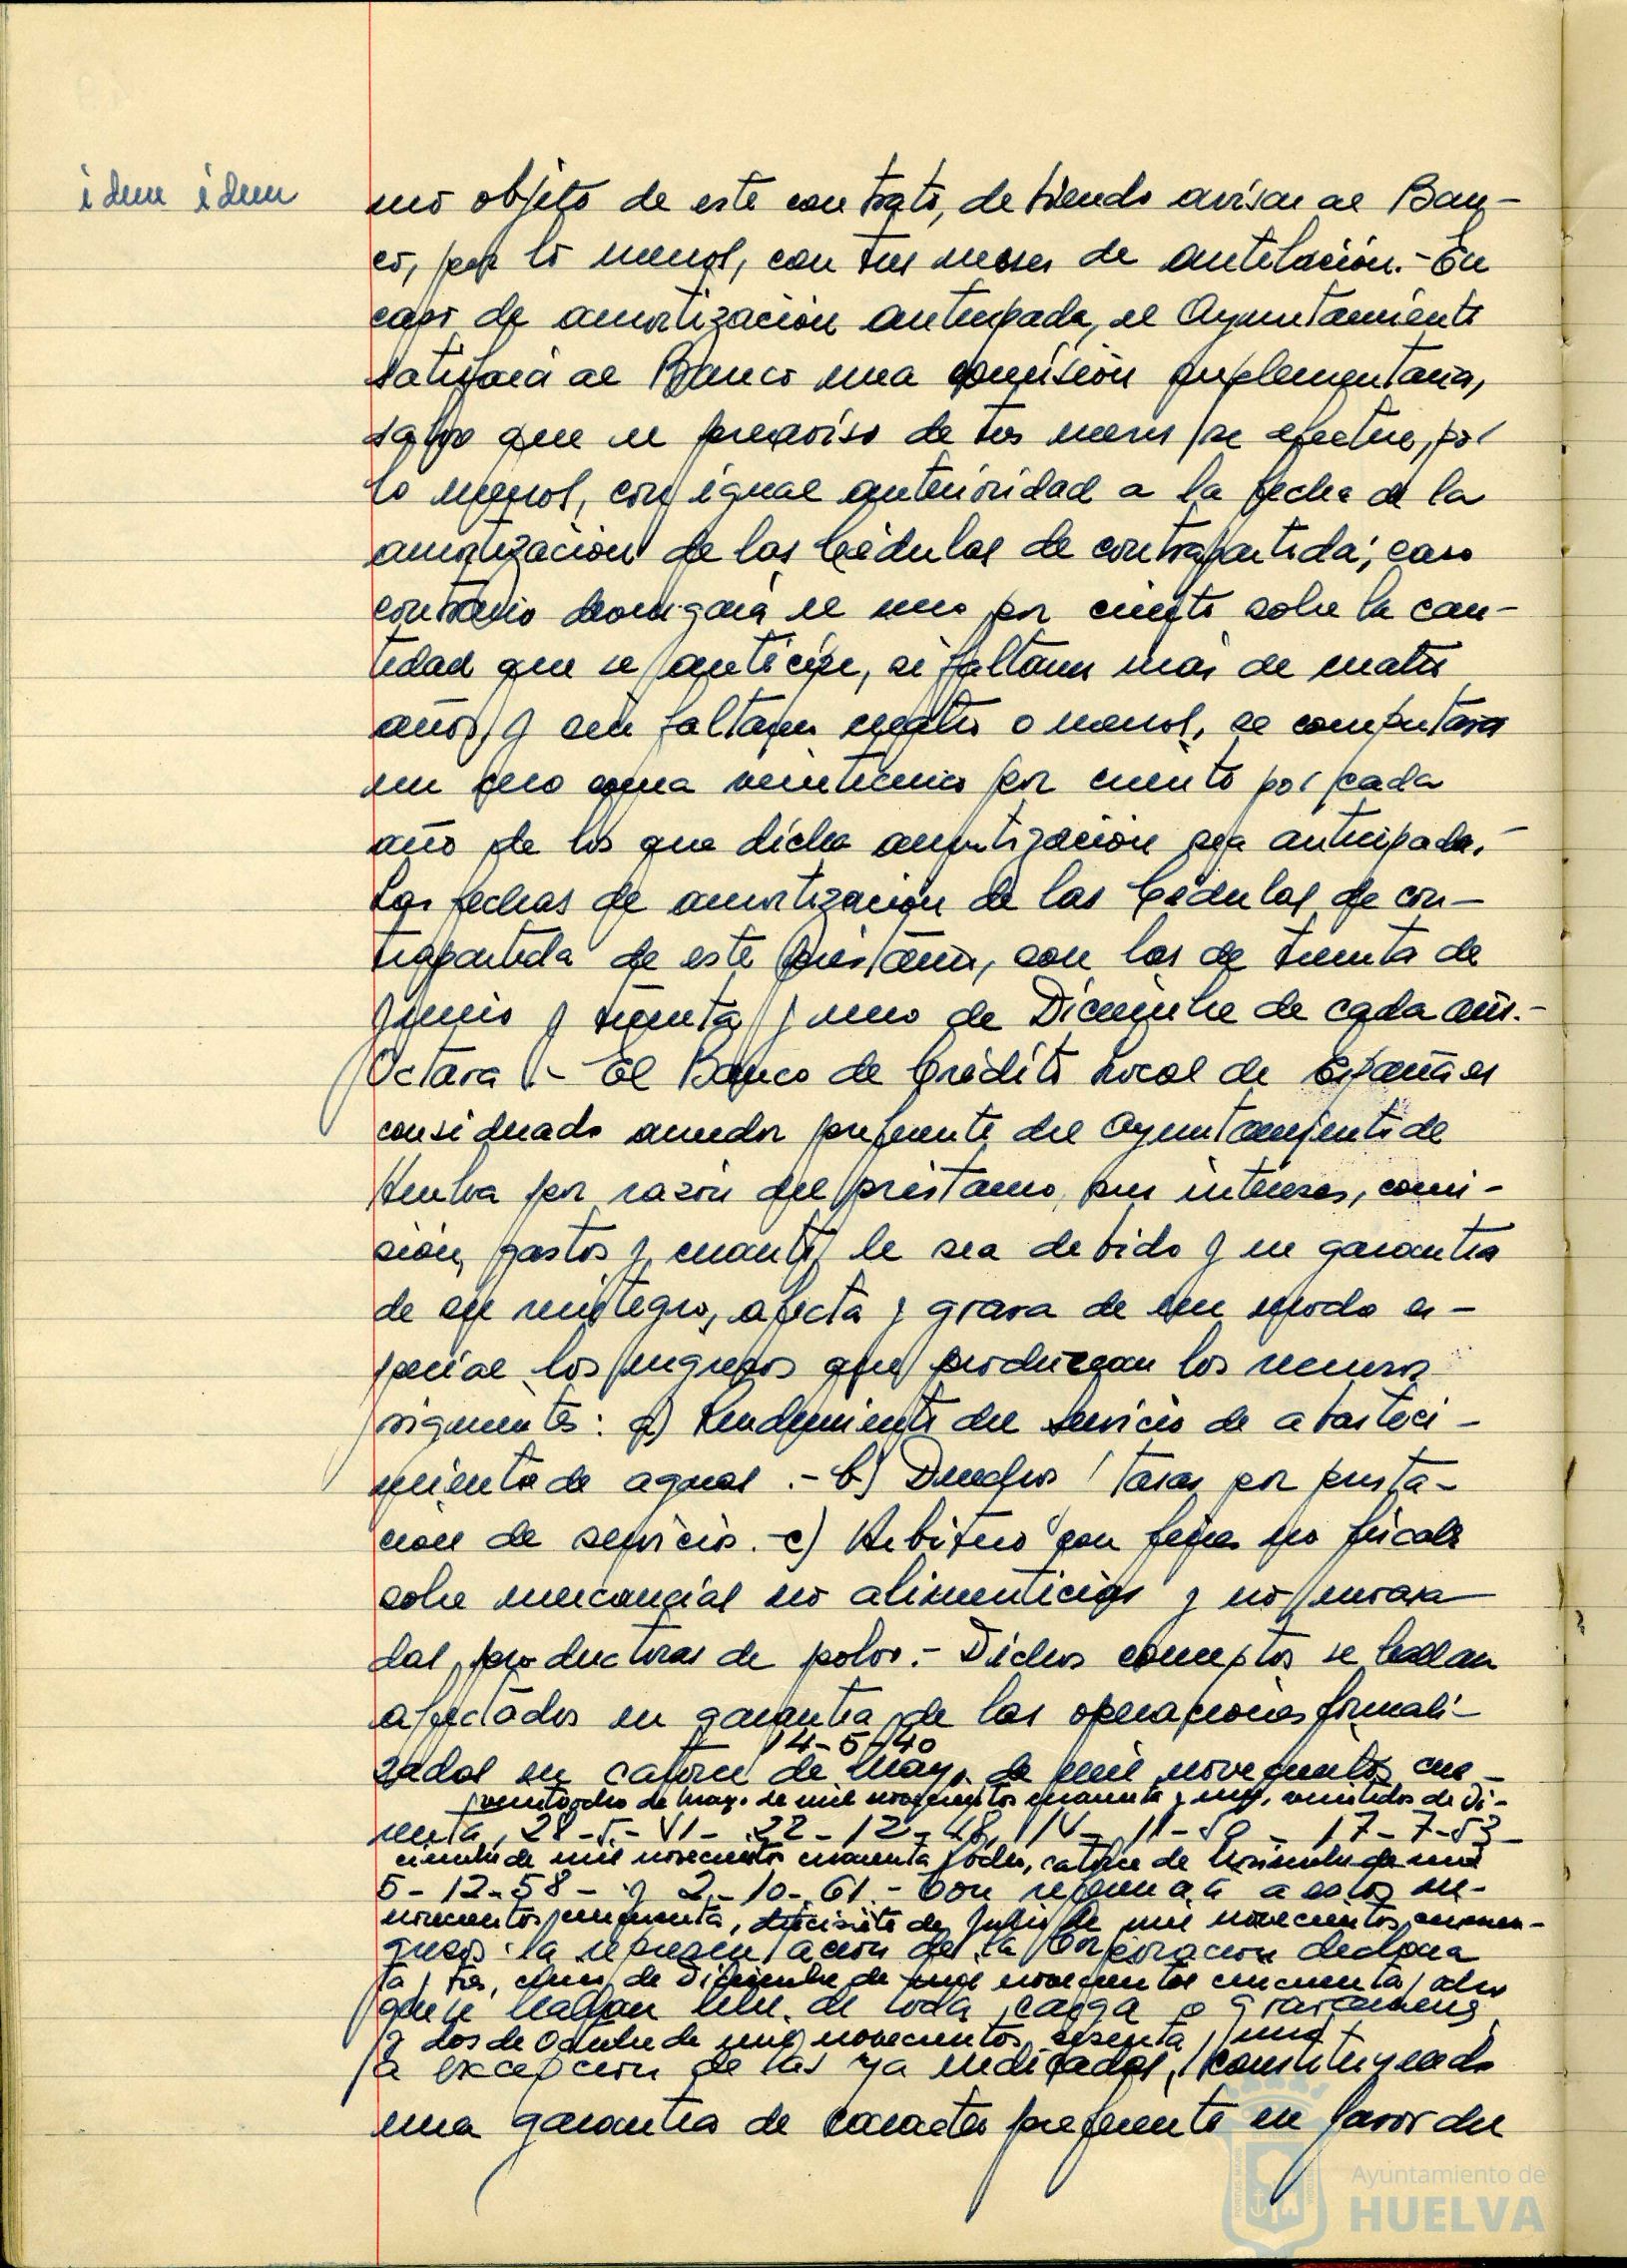 idem idem
mo objeto de este contrato, debiendo avisar al Ban-
co, por lo menos, con tres meses de antelación.- En
caso de amortización anticipada, el Ayuntamiento
satisfará al Banco una comisión suplementaria,
salvo que el preaviso de tres meses se efectue, por
lo menos, con igual anterioridad a la fecha de la
amortización de las Cédulas de contrapartida; caso
contrario devengará el uno por ciento sobre la can-
tidad que se anticipe, si faltaren más de cuatro
años, y si faltasen cuatro o menos, se computará
un cero coma veinticinco por ciento por cada
año de los que dicha amortización sea anticipada.-
Las fechas de amortización de las Cédulas de con-
trapartida de este préstamo, son las de treinta de
Junio y treinta y uno de Diciembre de cada año.-
Octava.- El Banco de Crédito Local de España es
considerado acreedor preferente del Ayuntamiento de
Huelva por razón del préstamo, sus intereses, comi-
sión, gastos y cuanto le sea debido y en garantía
de su reintegro, afecta y grava de un modo es-
pecial los ingresos que produzcan los recursos
siguientes: a) Rendimiento del Servicio de abasteci-
miento de aguas.- b) Derechos y tasas por presta-
ción de servicio.- c) Arbitrio con fines no fiscales
sobre mercancías no alimenticias y no envasa
das, productoras de polvo.- Dichos conceptos se hallan
afectados en garantía de las operaciones formali-
14-5-40
zadas en catorce de Mayo de mil novecientos cua-
veintiocho de Mayo de mil novecientos cuarenta y uno, veintidos de Di-
renta, 28-5-41- 22-12-48, 14-11-50 - 17-7-53-
ciembre de mil novecientos cuarenta y ocho, catorce de Noviembre de mil
5-12-58- y 2-10-61.- Con referencia a estos in-
novecientos cincuenta, diecisiete de Julio de mil novecientos cincuen-
gresos la representación de la Corporación declara
ta y tres, cinco de Diciembre de mil novecientos cincuenta y ocho
que se hallan libre de toda carga o gravamens
y dos de Octubre de mil novecientos sesenta y uno
a excepción de las ya indicadas, constituyendo
una garantía de caracter preferente en favor del
Ayuntamiento de
HUELVA